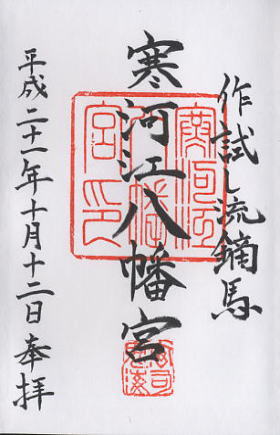 作試し流鏑馬
寒河江八幡宮
平成二十一年十月十二日奉拝
寒河江
八幡
宮印